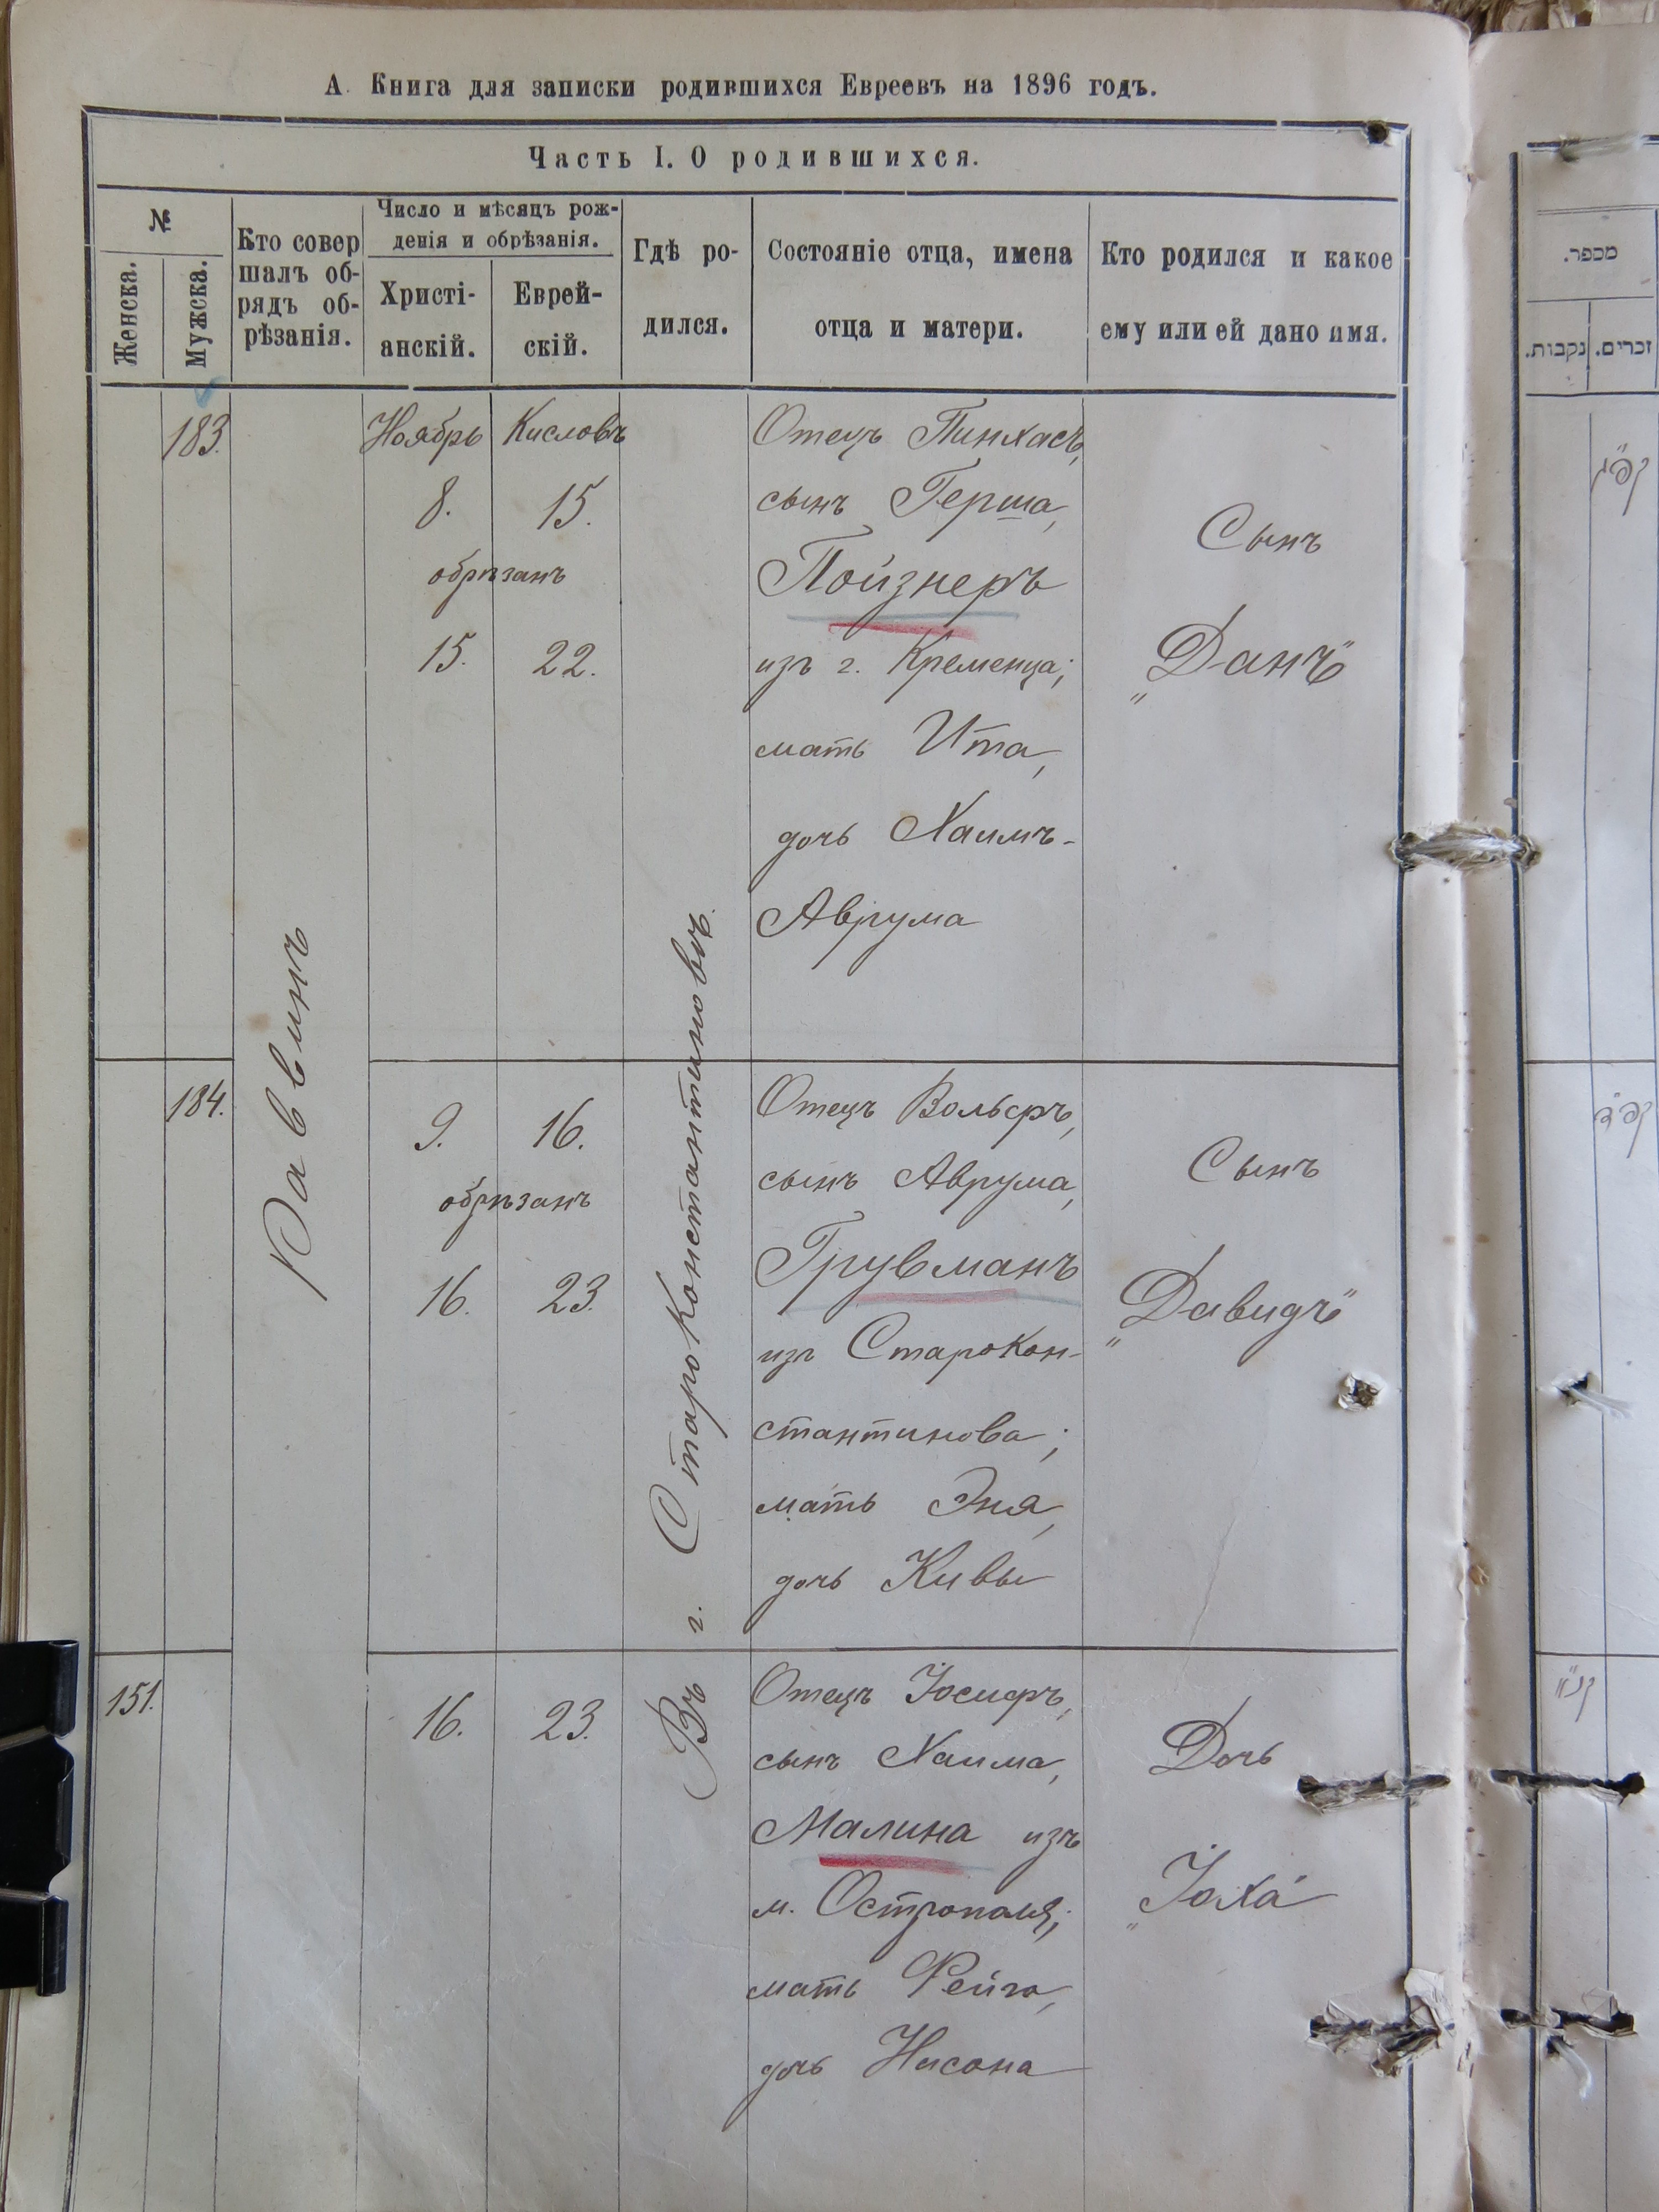 А. Книга для записки родившихся Евреевъ на 1896 годъ.
Часть I. О родившихся.
№
Женска.
Мужска.
Кто совер
шалъ об-
рядъ об-
рѣзанія.
Число и мѣсяцъ рож-
денія и обрѣзанія.
Христі-
анскій.
Еврей-
скій.
Гдѣ ро-
дился.
Состояніе отца, имена
отца и матери.
Кто родился и какое
ему или ей дано имя.
183.
Раввинъ
Ноябрь
Кисловъ
8.
15.
обрѣзанъ
15.
22.
Въ г. Староконстантиновѣ.
Отецъ Пинхасъ,
сынъ Герша,
Пойзнеръ
изъ г. Кременца;
мать Ита,
дочь Хаимъ-
Аврума
Сынъ
„Данъ"
184.
9.
16.
обрѣзанъ
16.
23.
Отецъ Вольфъ,
сынъ Аврума,
Грувманъ
изъ Старокон-
стантинова;
мать Эня,
дочь Кивы
Сынъ
„Давидъ"
151.
16.
23.
Отецъ Іосифъ,
сынъ Хаима,
Малина изъ
м. Острополя;
мать Фейга,
дочь Нисона
Дочь
„Іоха"
מספר.
זכרים.
נקבות.
קפ"ג
קפ"ד
קנ"א